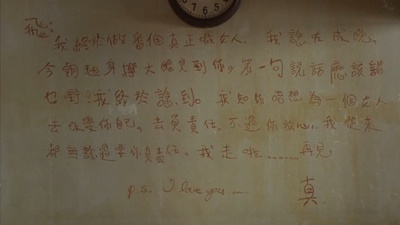 飛：
我終於做番個真正嘅女人，我成晚，
今朝起身擘大眼見到你。有一句說話應該講
我。我知你唔想為一個女人
去改變自己，去負責任，不過你放心，我從來
都無諗過要你負責任。我走啦……再見
p.s. I love you....
真